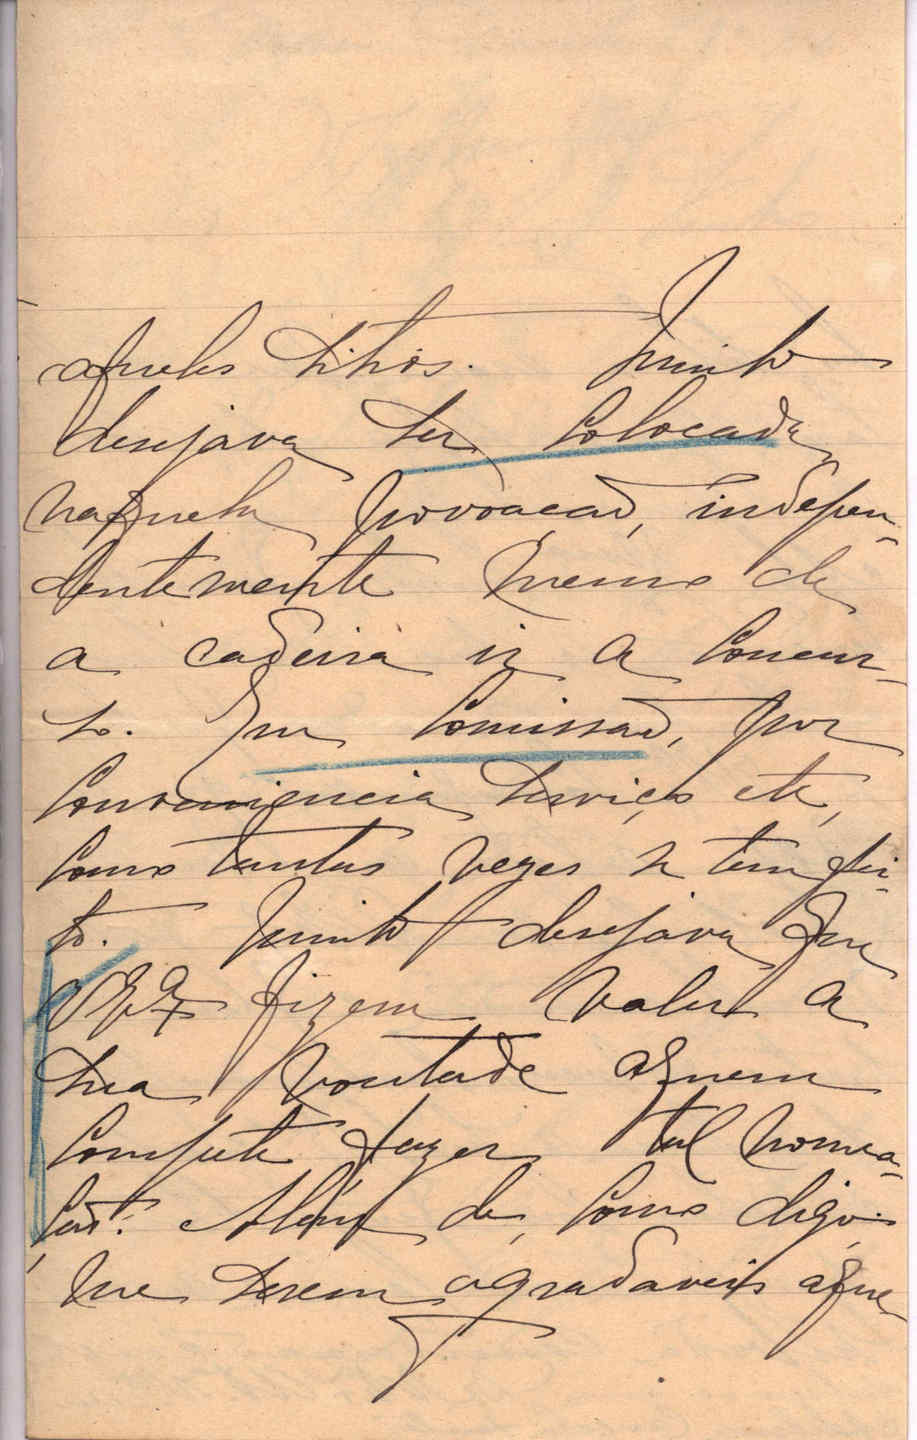 aqueles sitios. Muito
desejava ser colocada
naquela povoação, indepen-
dentemente mesmo de
a cadeira ir a concur-
so. Em comissão, por
conveniencia serviço etc,
como tantas vezes se tem fei-
to. Muito desejava que
V. Ex.ª fizesse valer a
sua vontade a quem
compete fazer tal nomea-
ção. Além de, como digo,
me serem agradaveis aque-